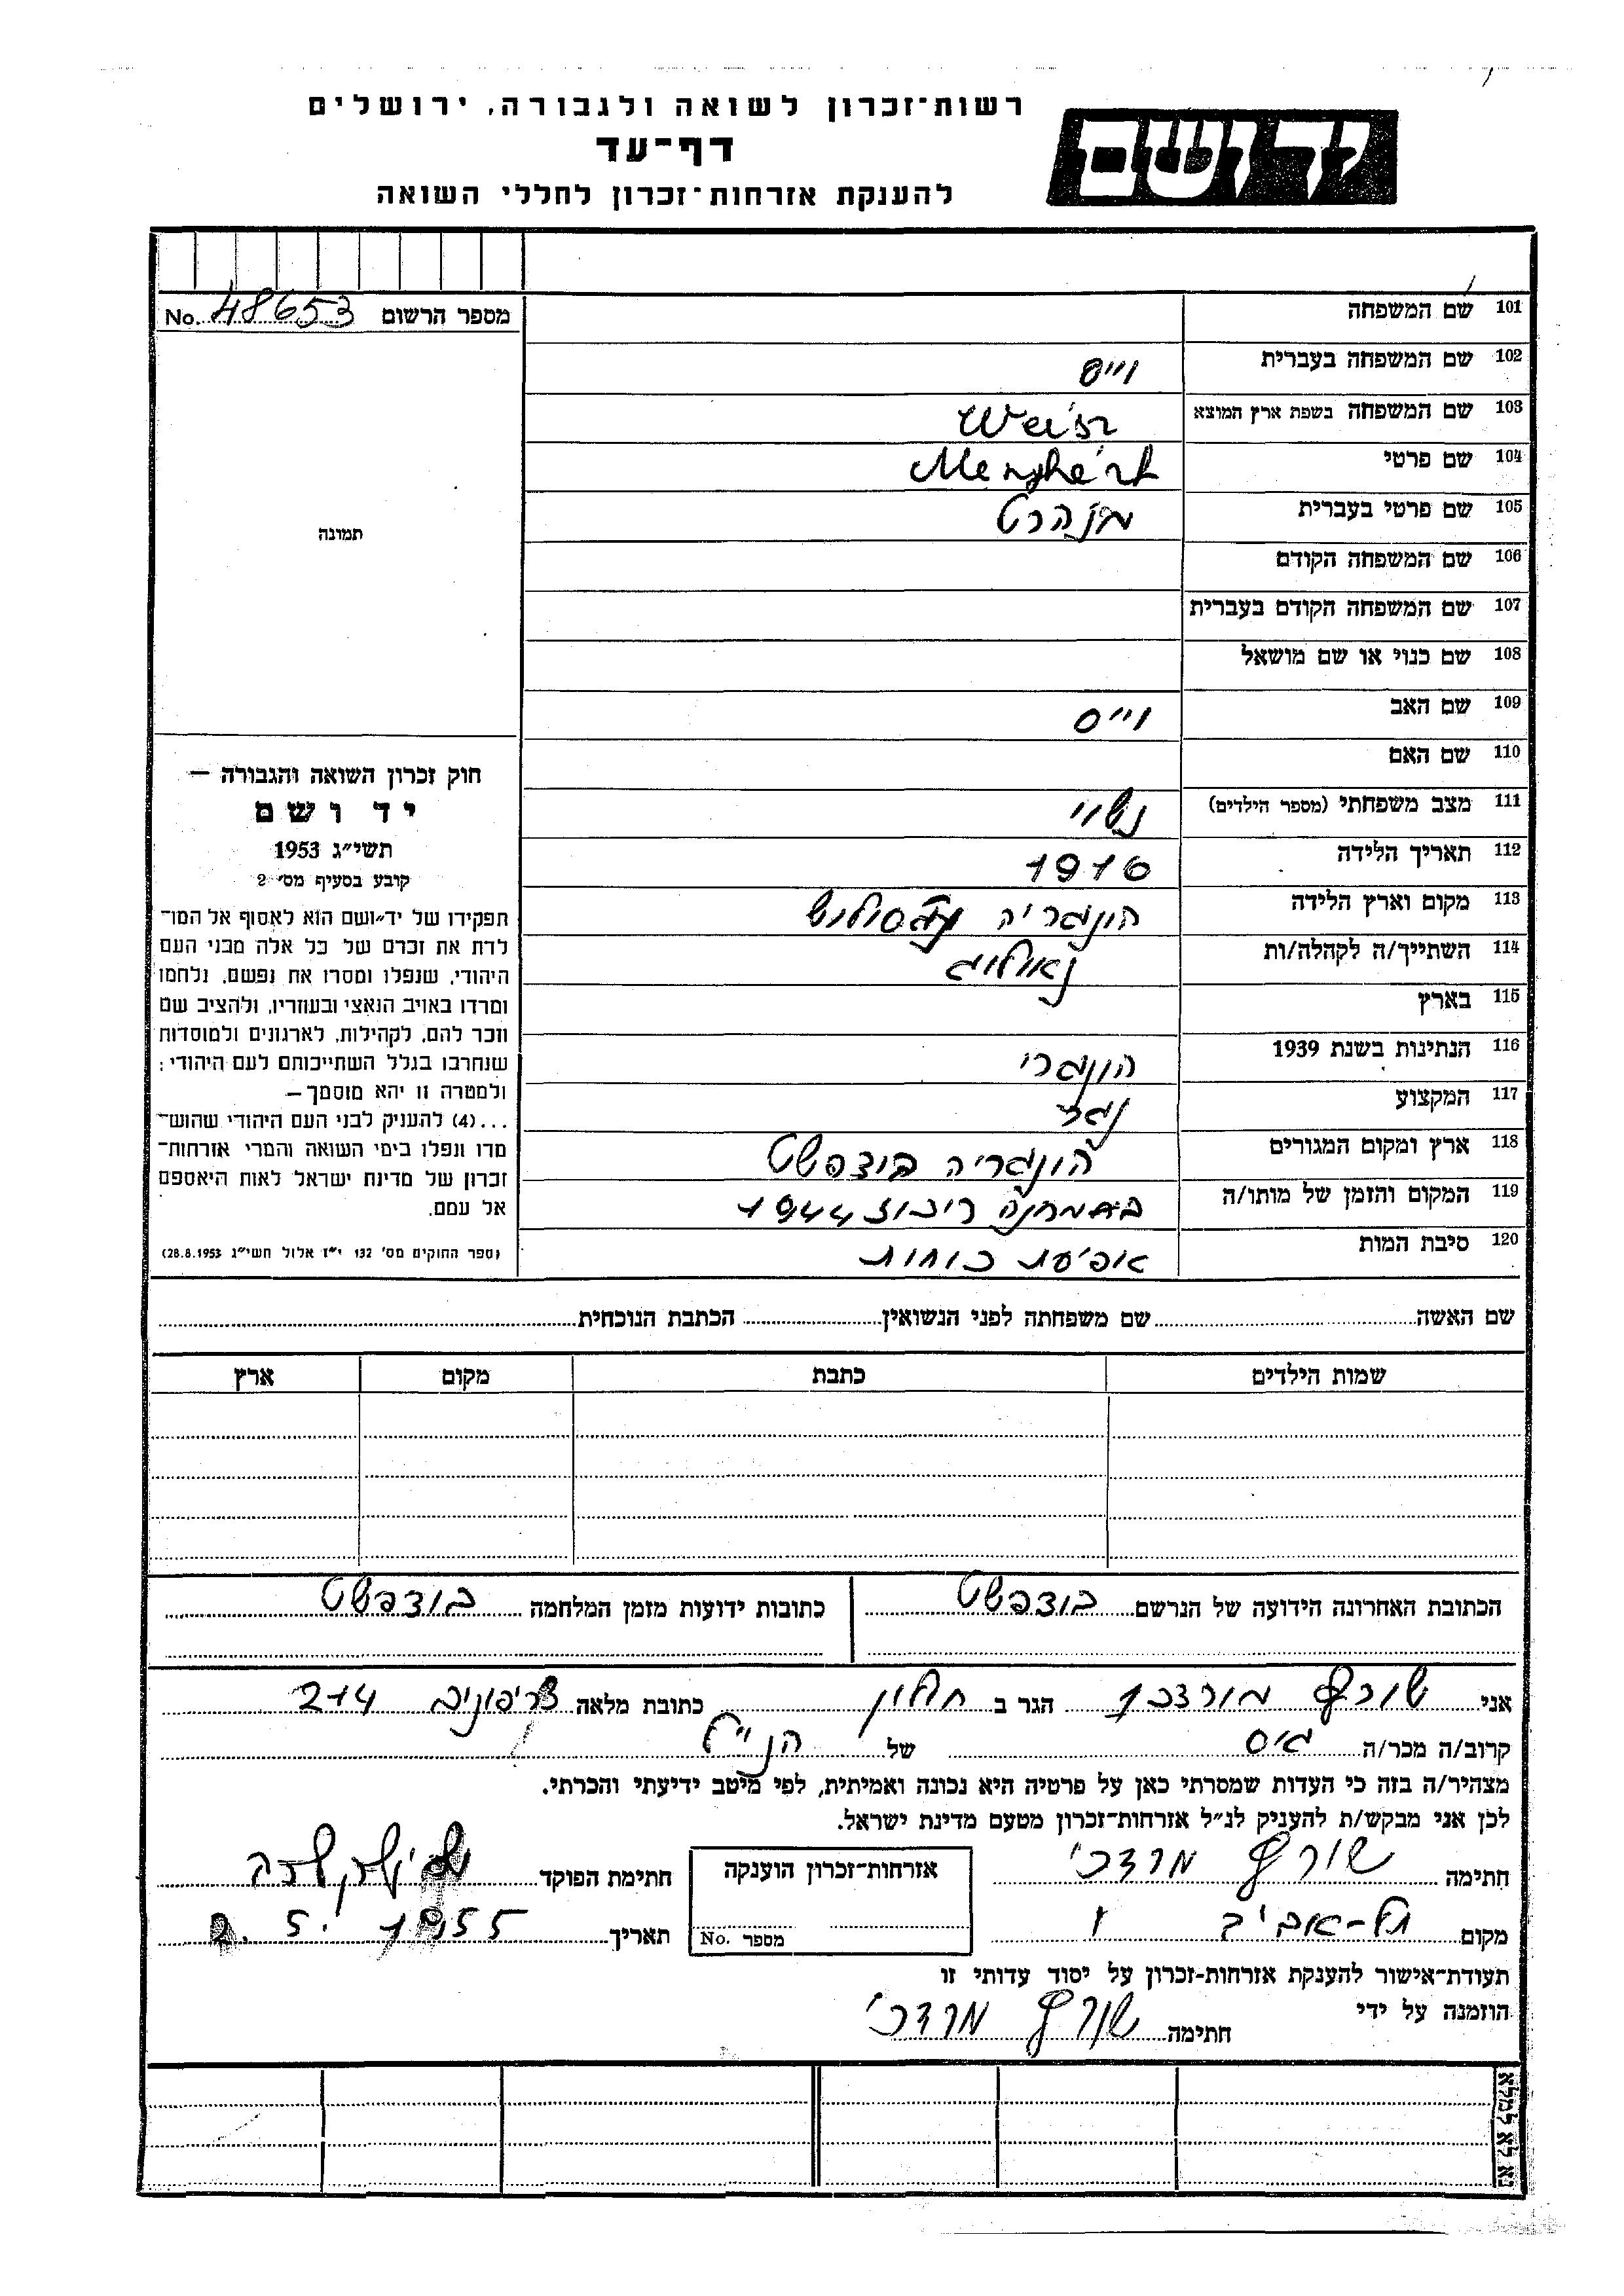 רשות־זכרון לשואה ולגבורה, ירושלים
דף־עד
להענקת אזרחות־זכרון לחללי השואה
יד ושם
מספר הרשום No. 48653
תמונה
101 שם המשפחה
102 שם המשפחה בעברית וייס
103 שם המשפחה בשפת ארץ המוצא Weisz
104 שם פרטי Menyhért
105 שם פרטי בעברית מנהרט
106 שם המשפחה הקודם
107 שם המשפחה הקודם בעברית
108 שם כנוי או שם מושאל
109 שם האב וייס
110 שם האם
111 מצב משפחתי (מספר הילדים) נשוי
112 תאריך הלידה 1916
113 מקום וארץ הלידה הונגריה
114 השתייך/ה לקהלה/ות
115 בארץ
116 הנתינות בשנת 1939 הונגרי
117 המקצוע נגר
118 ארץ ומקום המגורים הונגריה בודפשט
119 המקום והזמן של מותו/ה במחנה ריכוז 1944
120 סיבת המות אפיסת כוחות
חוק זכרון השואה והגבורה —
יד ושם
תשי״ג 1953
קובע בסעיף מס׳ 2
תפקידו של יד־ושם הוא לאסוף אל המו־
לדת את זכרם של כל אלה מבני העם
היהודי, שנפלו ומסרו את נפשם, נלחמו
ומרדו באויב הנאצי ובעוזריו, ולהציב שם
וזכר להם, לקהילות, לארגונים ולמוסדות
שנחרבו בגלל השתייכותם לעם היהודי;
ולמטרה זו יהא מוסמך —
...(4) להעניק לבני העם היהודי שהוש־
מדו ונפלו בימי השואה והמרי אזרחות־
זכרון של מדינת ישראל לאות היאספם
אל עמם.
(ספר החוקים מס׳ 132 י״ז אלול תשי״ג 28.8.1953)
שם האשה שם משפחתה לפני הנשואין הכתבת הנוכחית
שמות הילדים כתבת מקום ארץ
הכתובת האחרונה הידועה של הנרשם בודפשט כתובות ידועות מזמן המלחמה בודפשט
אני שורף מורדכי הגר ב חולון כתובת מלאה צריפונים 214
קרוב/ה מכר/ה גיס של הנ״ל
מצהיר/ה בזה כי העדות שמסרתי כאן על פרטיה היא נכונה ואמיתית, לפי מיטב ידיעתי והכרתי.
לכן אני מבקש/ת להעניק לנ״ל אזרחות־זכרון מטעם מדינת ישראל.
חתימה שורף מרדכי אזרחות־זכרון הוענקה חתימת הפוקד
מקום תל-אביב מספר No. תאריך 2. 5. 1955
תעודת־אישור להענקת אזרחות-זכרון על יסוד עדותי זו
הוזמנה על ידי חתימה שורף מרדכי
נא לא למלא